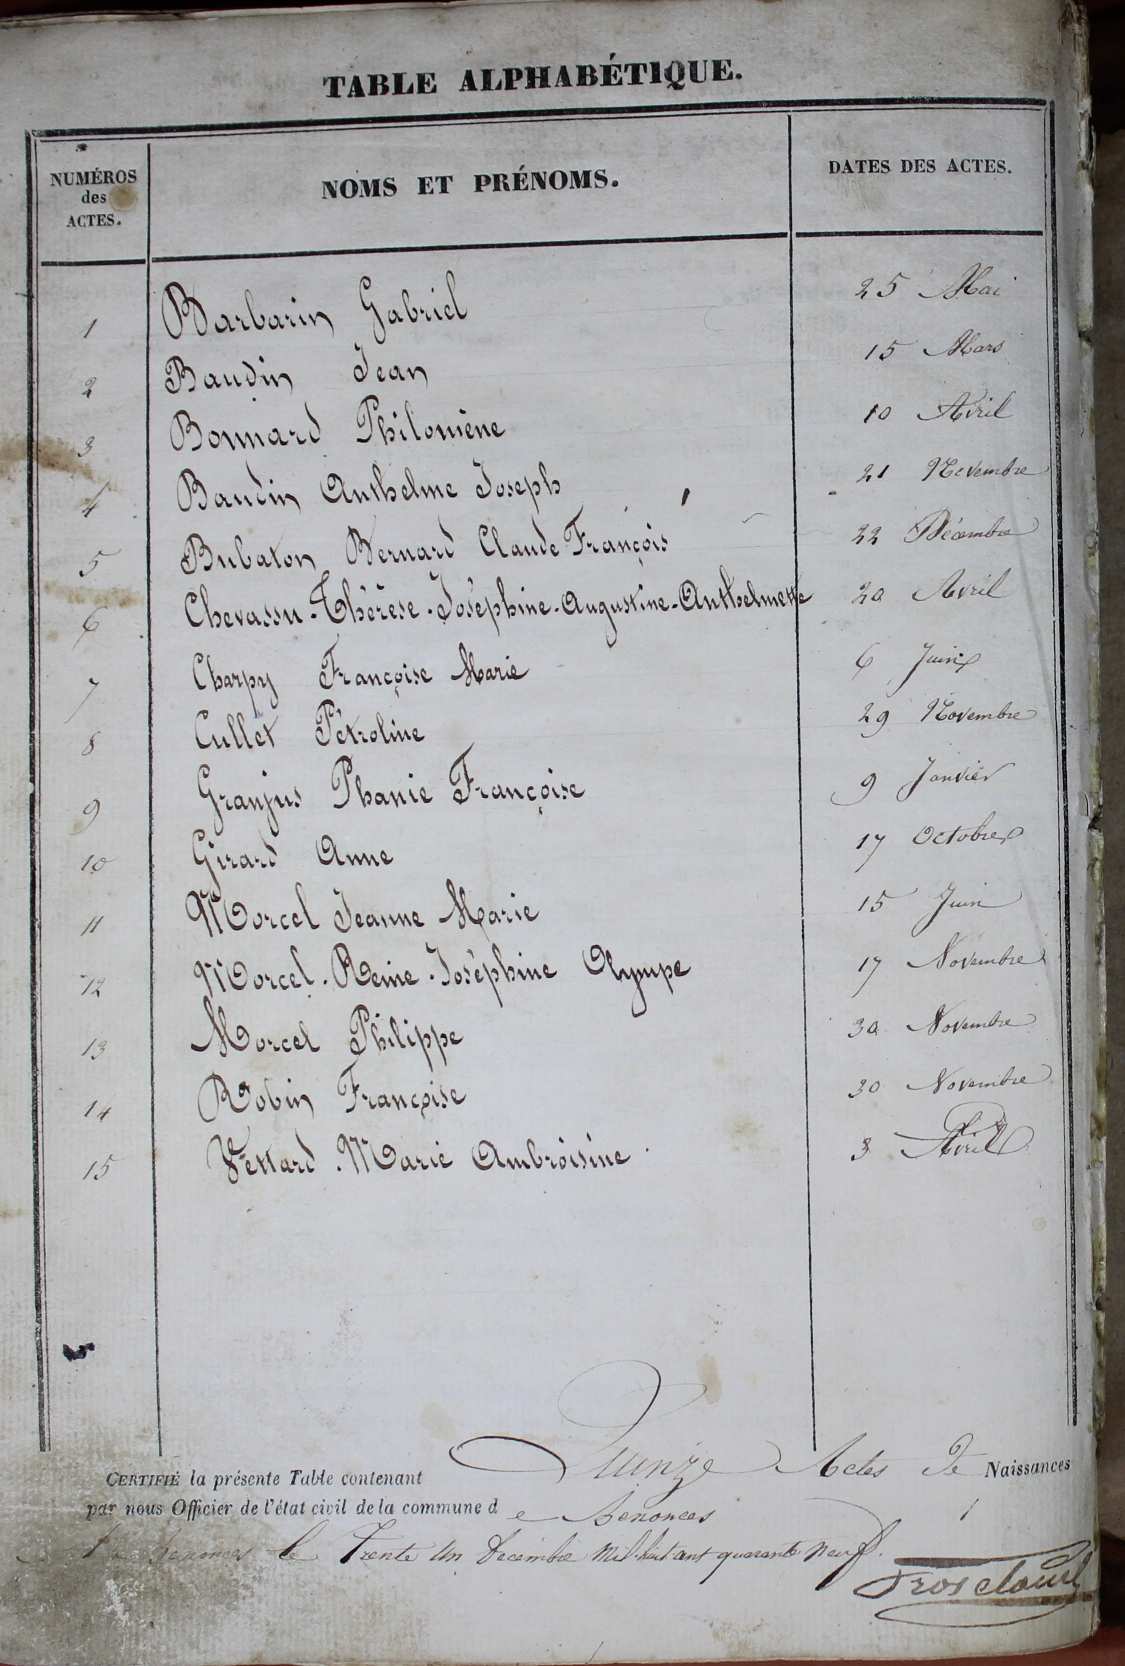 TABLE ALPHABÉTIQUE.
NUMÉROS des ACTES. NOMS ET PRÉNOMS. DATES DES ACTES.
1 Barbarin Gabriel 25 Mai
2 Baudin Jean 15 Mars
3 Bonnard Philomène 10 Avril
4 Baudin Anthelme Joseph 21 Novembre
5 Bubaton Bernard Claude François 22 Décembre
6 Chevassu - Thérèse - Joséphine - Augustine - Anthelmette 20 Avril
7 Charpy Françoise Marie 6 Juin
8 Cullet Pétroline 29 Novembre
9 Granjus Phanie Françoise 9 Janvier
10 Girard Anne 17 Octobre
11 Morcel Jeanne Marie 15 Juin
12 Morcel - Reine - Joséphine Olympe 17 Novembre
13 Morcel Philippe 30 Novembre
14 Robin Françoise 30 Novembre
15 Vettard Marie Ambroisine 3 Avril
CERTIFIÉ la présente Table contenant Quinze Actes de Naissances
par nous Officier de l'état civil de la commune de Benonces
Benonces le Trente un Decembre mil huit cent quarante neuf.